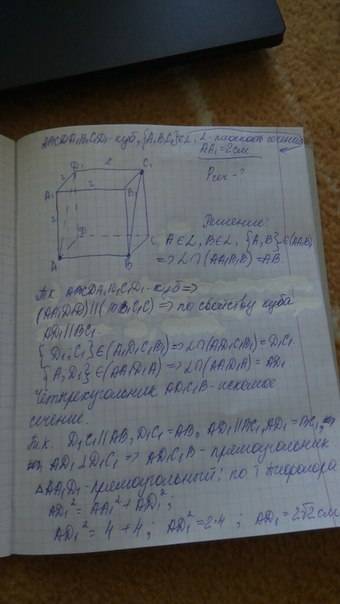 ABCDA₁B₁C₁D₁-куб, {A,B,C₁}∈α, α-плоскость сечения
AA₁=2см
Pсеч-?
D₁ 2 C₁
2
A₁ 2 B₁
2
D C
A B
Решение:
A∈α, B∈α, {A,B}∈(AA₁B₁)
=>α∩(AA₁B₁B)=AB.
Т.к. ABCDA₁B₁C₁D₁-куб=>
(AA₁D₁D)||(BB₁C₁C)=>по свойству куба
AD₁||BC₁
{D₁,C₁}∈(A₁D₁C₁B₁)=>α∩(A₁D₁C₁B₁)=D₁C₁
{A,D₁}∈(AA₁D₁D)=>α∩(AA₁D₁D)=AD₁
Четырехугольник AD₁C₁B-искомое
сечение.
Т.к. D₁C₁||AB, D₁C₁=AB, AD₁||BC₁, AD₁=BC₁,
AD₁⊥D₁C₁=>AD₁C₁B-прямоугольник
△AA₁D₁-прямоугольный: по т Пифагора
AD₁²=AA₁²+AD₁²;
AD₁²=4+4; AD₁²=2·4; AD₁=2√2см